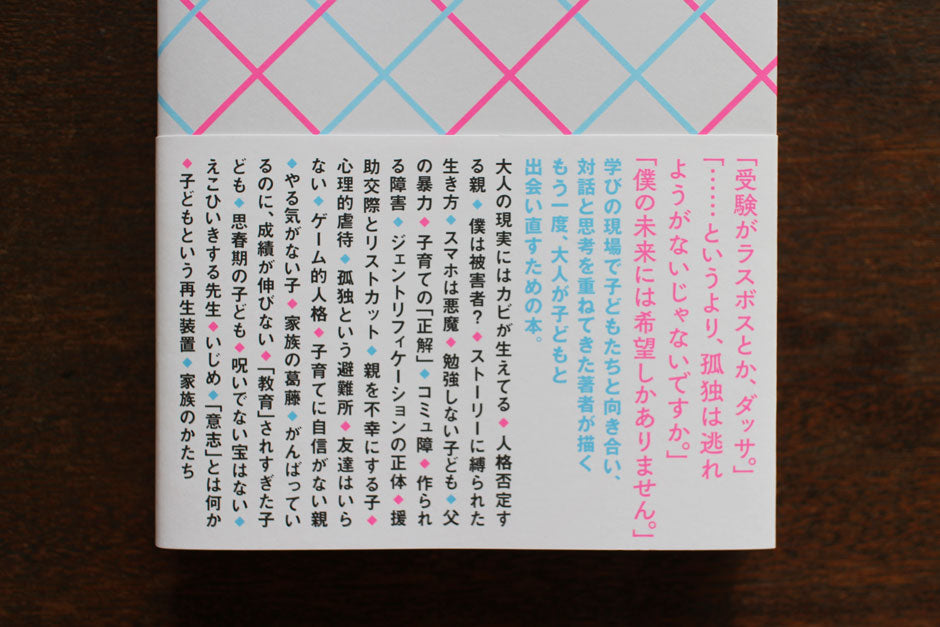 「受験がラスボスとか、ダッサ。」
「……というより、孤独は逃れ
ようがないじゃないですか。」
「僕の未来には希望しかありません。」
学びの現場で子どもたちと向き合い、
対話と思考を重ねてきた著者が描く
もう一度、大人が子どもと
出会い直すための本。
大人の現実にはカビが生えてる◆人格否定す
る親◆僕は被害者?◆ストーリーに縛られた
生き方◆スマホは悪魔◆勉強しない子ども◆父
の暴力◆子育ての「正解」◆コミュ障◆作られ
る障害◆ジェントリフィケーションの正体◆援
助交際とリストカット◆親を不幸にする子◆
心理的虐待◆孤独という避難所◆友達はいら
ない◆ゲーム的人格◆子育てに自信がない親
◆やる気がない子◆家族の葛藤◆がんばってい
るのに、成績が伸びない◆「教育」されすぎた子
ども◆思春期の子ども◆呪いでない宝はない◆
えこひいきする先生◆いじめ◆「意志」とは何か
◆子どもという再生装置◆家族のかたち